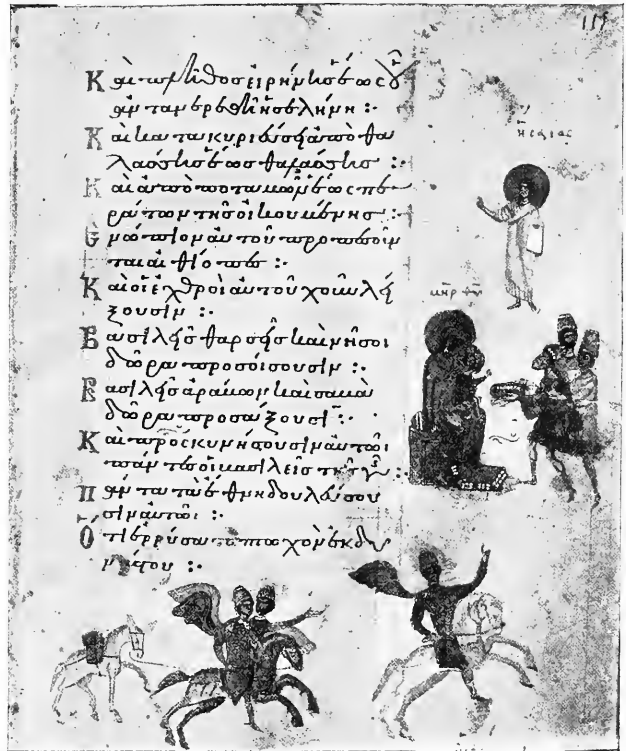 Καὶ πλῆθος εἰρήνης ἕως οὗ
ἀνταναιρεθῇ ἡ σελήνη :·
Καὶ κατακυριεύσει ἀπὸ θα
λάσσης ἕως θαλάσσης :·
Καὶ ἀπὸ ποταμῶν ἕως πε
ράτων τῆς οἰκουμένης :·
Ἐνώπιον αὐτοῦ προπεσοῦν
ται αἰθίοπες :·
Καὶ οἱ ἐχθροὶ αὐτοῦ χοῦν λεί
ξουσιν :·
Βασιλεῖς θαρσεῖς καὶ νῆσοι
δῶρα προσοίσουσιν :·
Βασιλεῖς ἀράβων καὶ σαβὰ
δῶρα προσάξουσι :·
Καὶ προσκυνήσουσιν αὐτῶι
πάντες οἱ βασιλεῖς τῆς γῆς :·
Πάντα τὰ ἔθνη δουλεύσου
σιν αὐτῶι :·
Ὅτι ἐρρύσατο πτωχὸν ἐκ δυ
νάστου :·
ἠσαίας
μηρ θυ